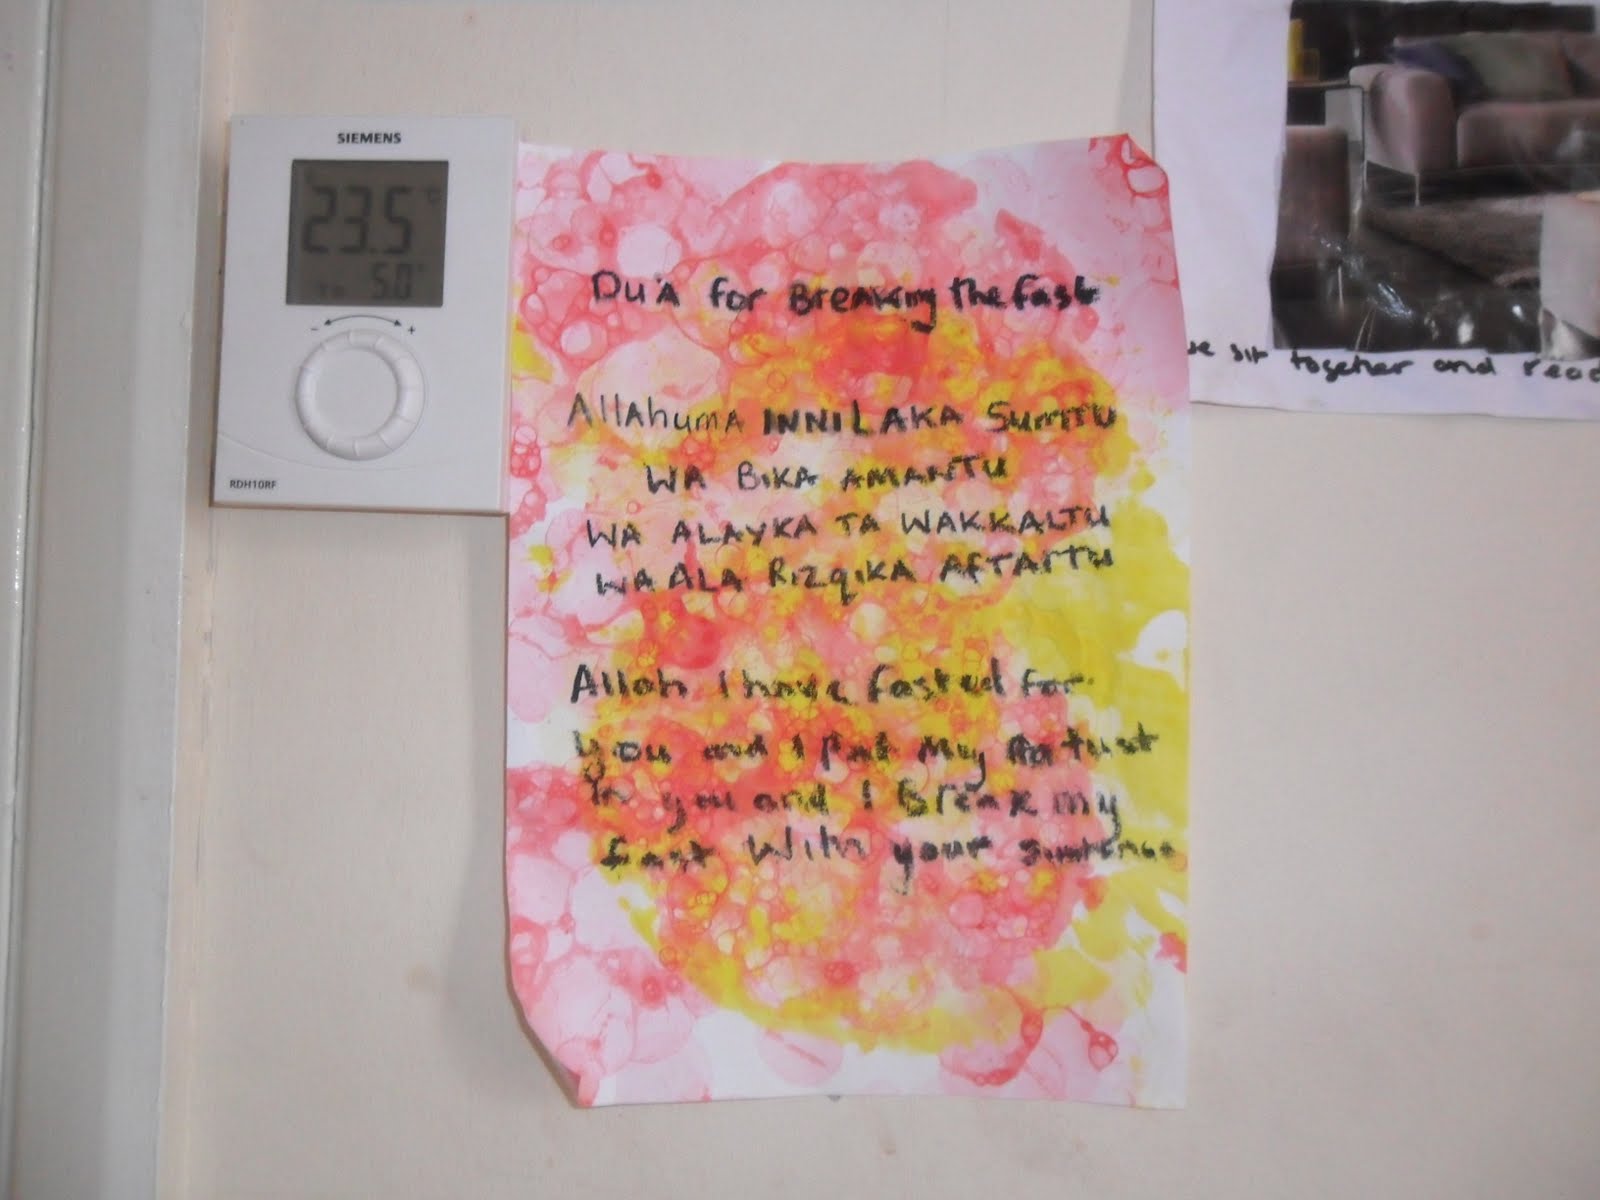 SIEMENS
23.5 °C
5.0°
- +
RDH10RF
Du'A for Breaking the fast
Allahuma INNILAKA Sumtu
WA BIKA AMANTU
WA ALAYKA TA WAKKALTU
WA ALA RizqiKA AFTARTU
Allah I have fasted for
you and I Put My
In you and I Break my
fast With your
we sit together and read